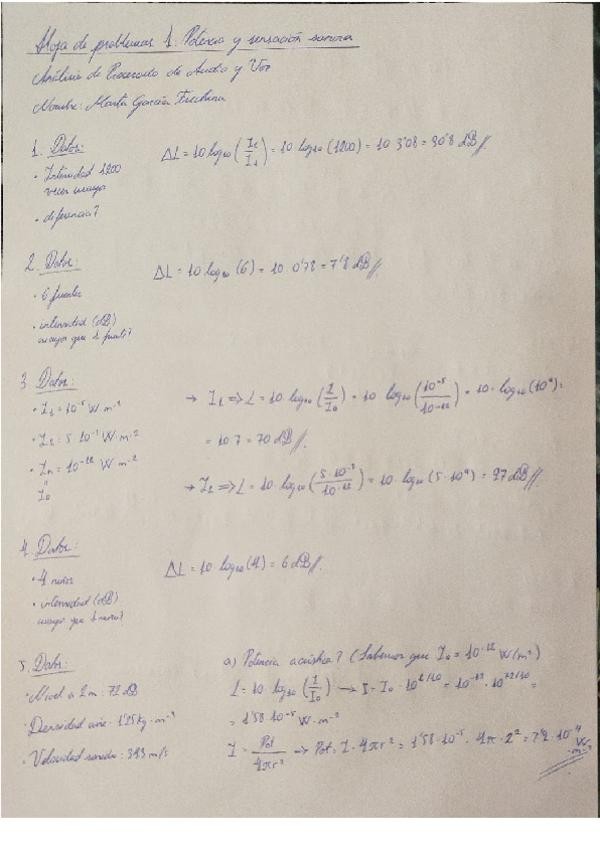 Hoja de problemas 1: Potencia y sensación sonora
Análisis de Procesado de Audio y Voz
Nombre: Marta García
1. Datos:
· Intensidad 1200
veces mayor
· diferencia?
ΔL = 10 log₁₀ (I₂/I₁) = 10 log₁₀ (1200) = 10 · 3'08 = 30'8 dB //
2. Datos:
· 6 fuentes
· intensidad (dB)
mayor que 1 fuente?
ΔL = 10 log₁₀ (6) = 10 · 0'78 = 7'8 dB //
3. Datos:
· I₁ = 10⁻⁵ W·m⁻²
· I₂ = 5·10⁻³ W·m⁻²
· = 10⁻¹² W·m⁻²
"
I₀
→ I₁ => L = 10 · log₁₀ (I/I₀) = 10 · log₁₀ (10⁻⁵/10⁻¹²) = 10 · log₁₀ (10⁷) =
= 10 · 7 = 70 dB //
→ I₂ => L = 10 · log₁₀ (5·10⁻³/10⁻¹²) = 10 · log₁₀ (5·10⁹) = 97 dB //
4. Datos:
· 4
· intensidad (dB)
mayor que 1
ΔL = 10 · log₁₀ (4) = 6 dB //
5. Datos:
· Nivel a 2m: 72 dB
· Densidad aire: 1'25 kg·m⁻³
· Velocidad sonido: 343 m/s
a) Potencia acústica? (Sabemos que I₀ = 10⁻¹² W/m²)
L = 10 · log₁₀ (I/I₀) → I = I₀ · 10^(L/10) = 10⁻¹² · 10^(72/10) =
= 1'58 · 10⁻⁵ W·m⁻²
I = Pot/4πr² → Pot = I · 4πr² = 1'58 · 10⁻⁵ · 4π · 2² = 7'9 · 10⁻⁴ W·m⁻² //